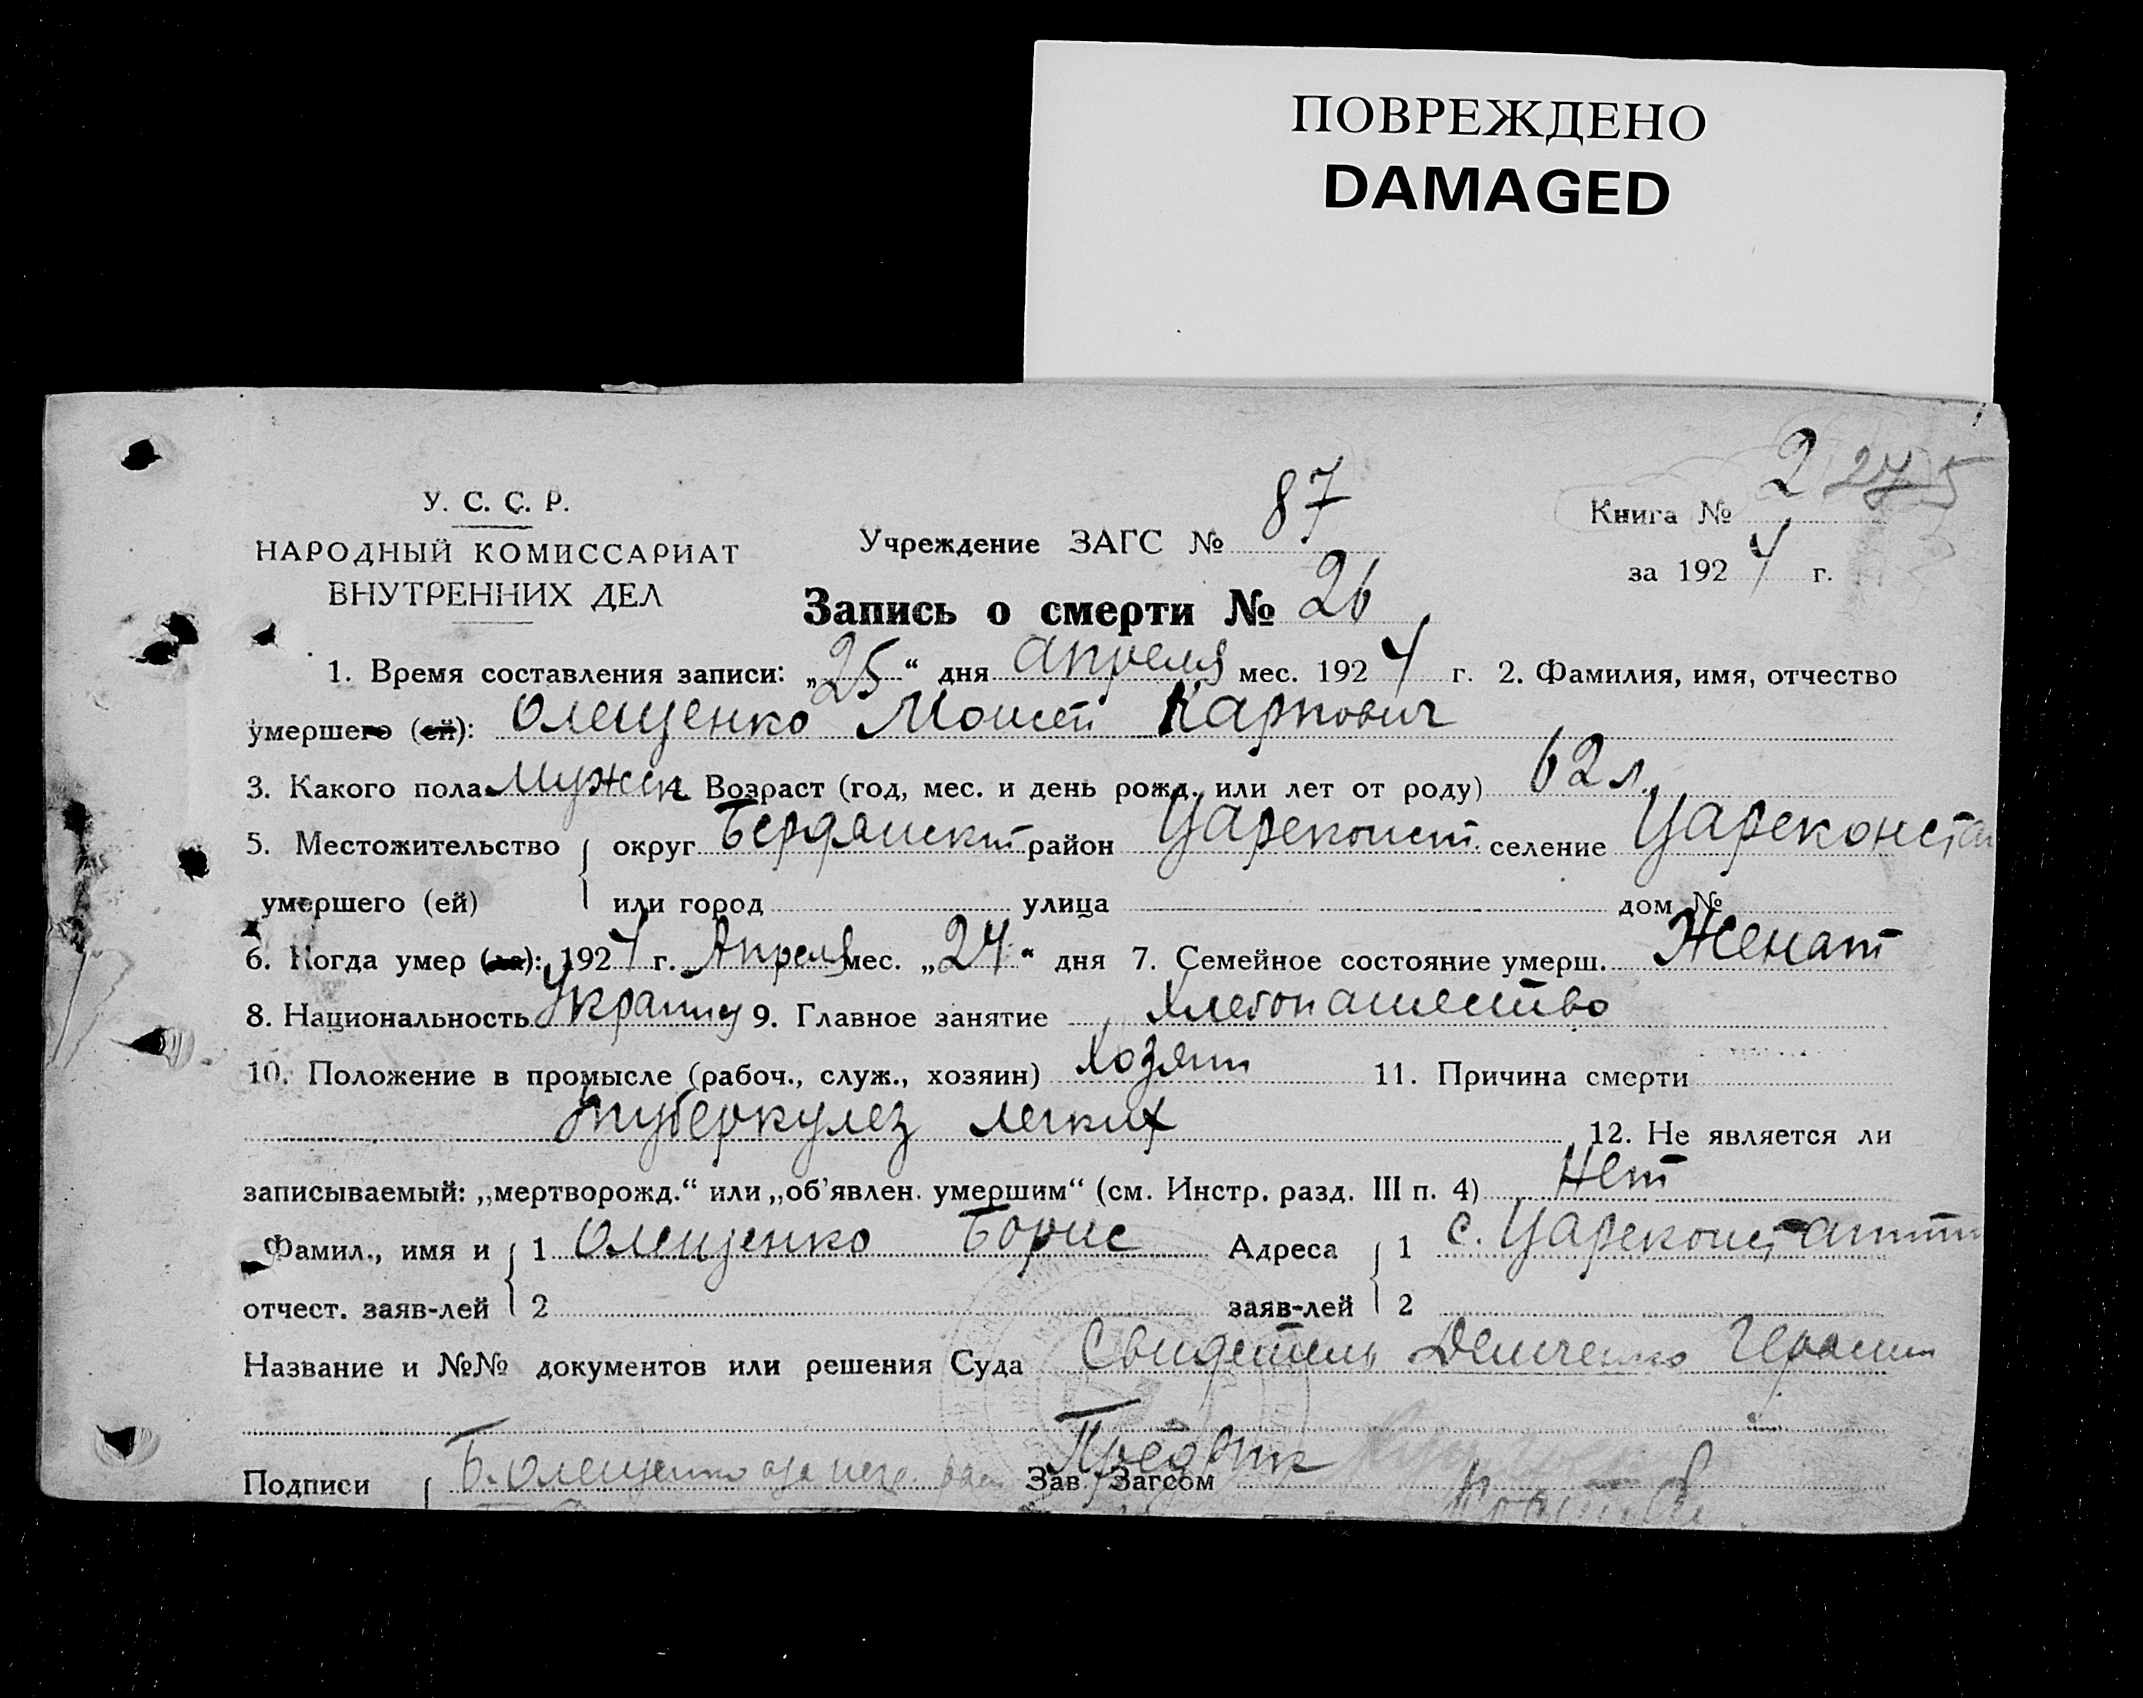 ПОВРЕЖДЕНО
DAMAGED
У. С. С. Р.
НАРОДНЫЙ КОМИССАРИАТ
ВНУТРЕННИХ ДЕЛ
Учреждение ЗАГС № 87
Книга № 2 275
за 1924 г.
Запись о смерти № 26
1. Время составления записи: „25“ дня апреля мес. 1924 г. 2. Фамилия, имя, отчество
умершего (ей): Олещенко Моисей Карпович
3. Какого пола Мужск Возраст (год, мес. и день рожд. или лет от роду) 62 л.
5. Местожительство округ Бердянский район Цареконст. селение Цареконстан
умершего (ей) или город улица дом №
6. Когда умер (ла): 1924 г. Апреля мес. „24“ дня 7. Семейное состояние умерш. Женат
8. Национальность Украинец 9. Главное занятие Хлебопашество
10. Положение в промысле (рабоч., служ., хозяин) хозяин 11. Причина смерти
туберкулез легких 12. Не является ли
записываемый: „мертворожд.“ или „об’явлен. умершим“ (см. Инстр. разд. III п. 4) Нет
Фамил., имя и 1 Олещенко Борис Адреса 1 с. Цареконстантин
отчест. заяв-лей 2 заяв-лей 2
Название и №№ документов или решения Суда Свидетель Демченко Герасим
Подписи Б. Олещенко Зав. Загсом Предвик